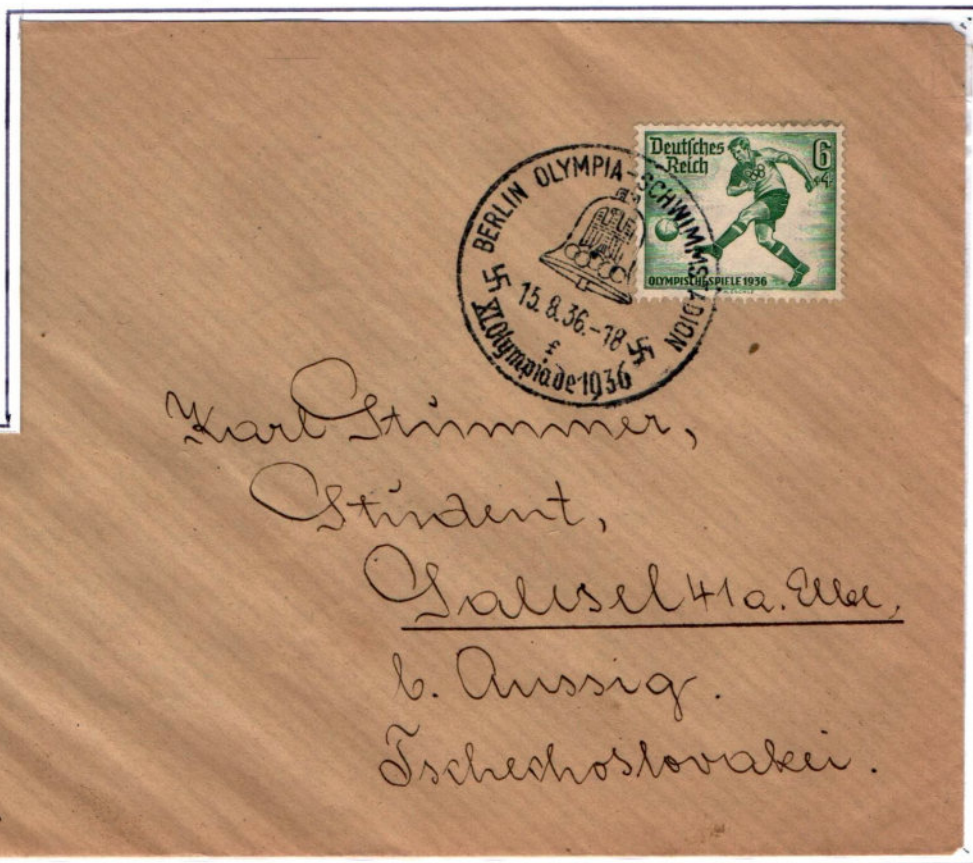 Deutsches
Reich
6
+4
OLYMPISCHE SPIELE 1936
BERLIN OLYMPIA-SCHWIMMSTADION
15.8.36.-18
f
XI. Olympiade 1936
Karl Stummer,
Student,
41 a. Elbe,
b. Aussig.
Tschechoslovakei.